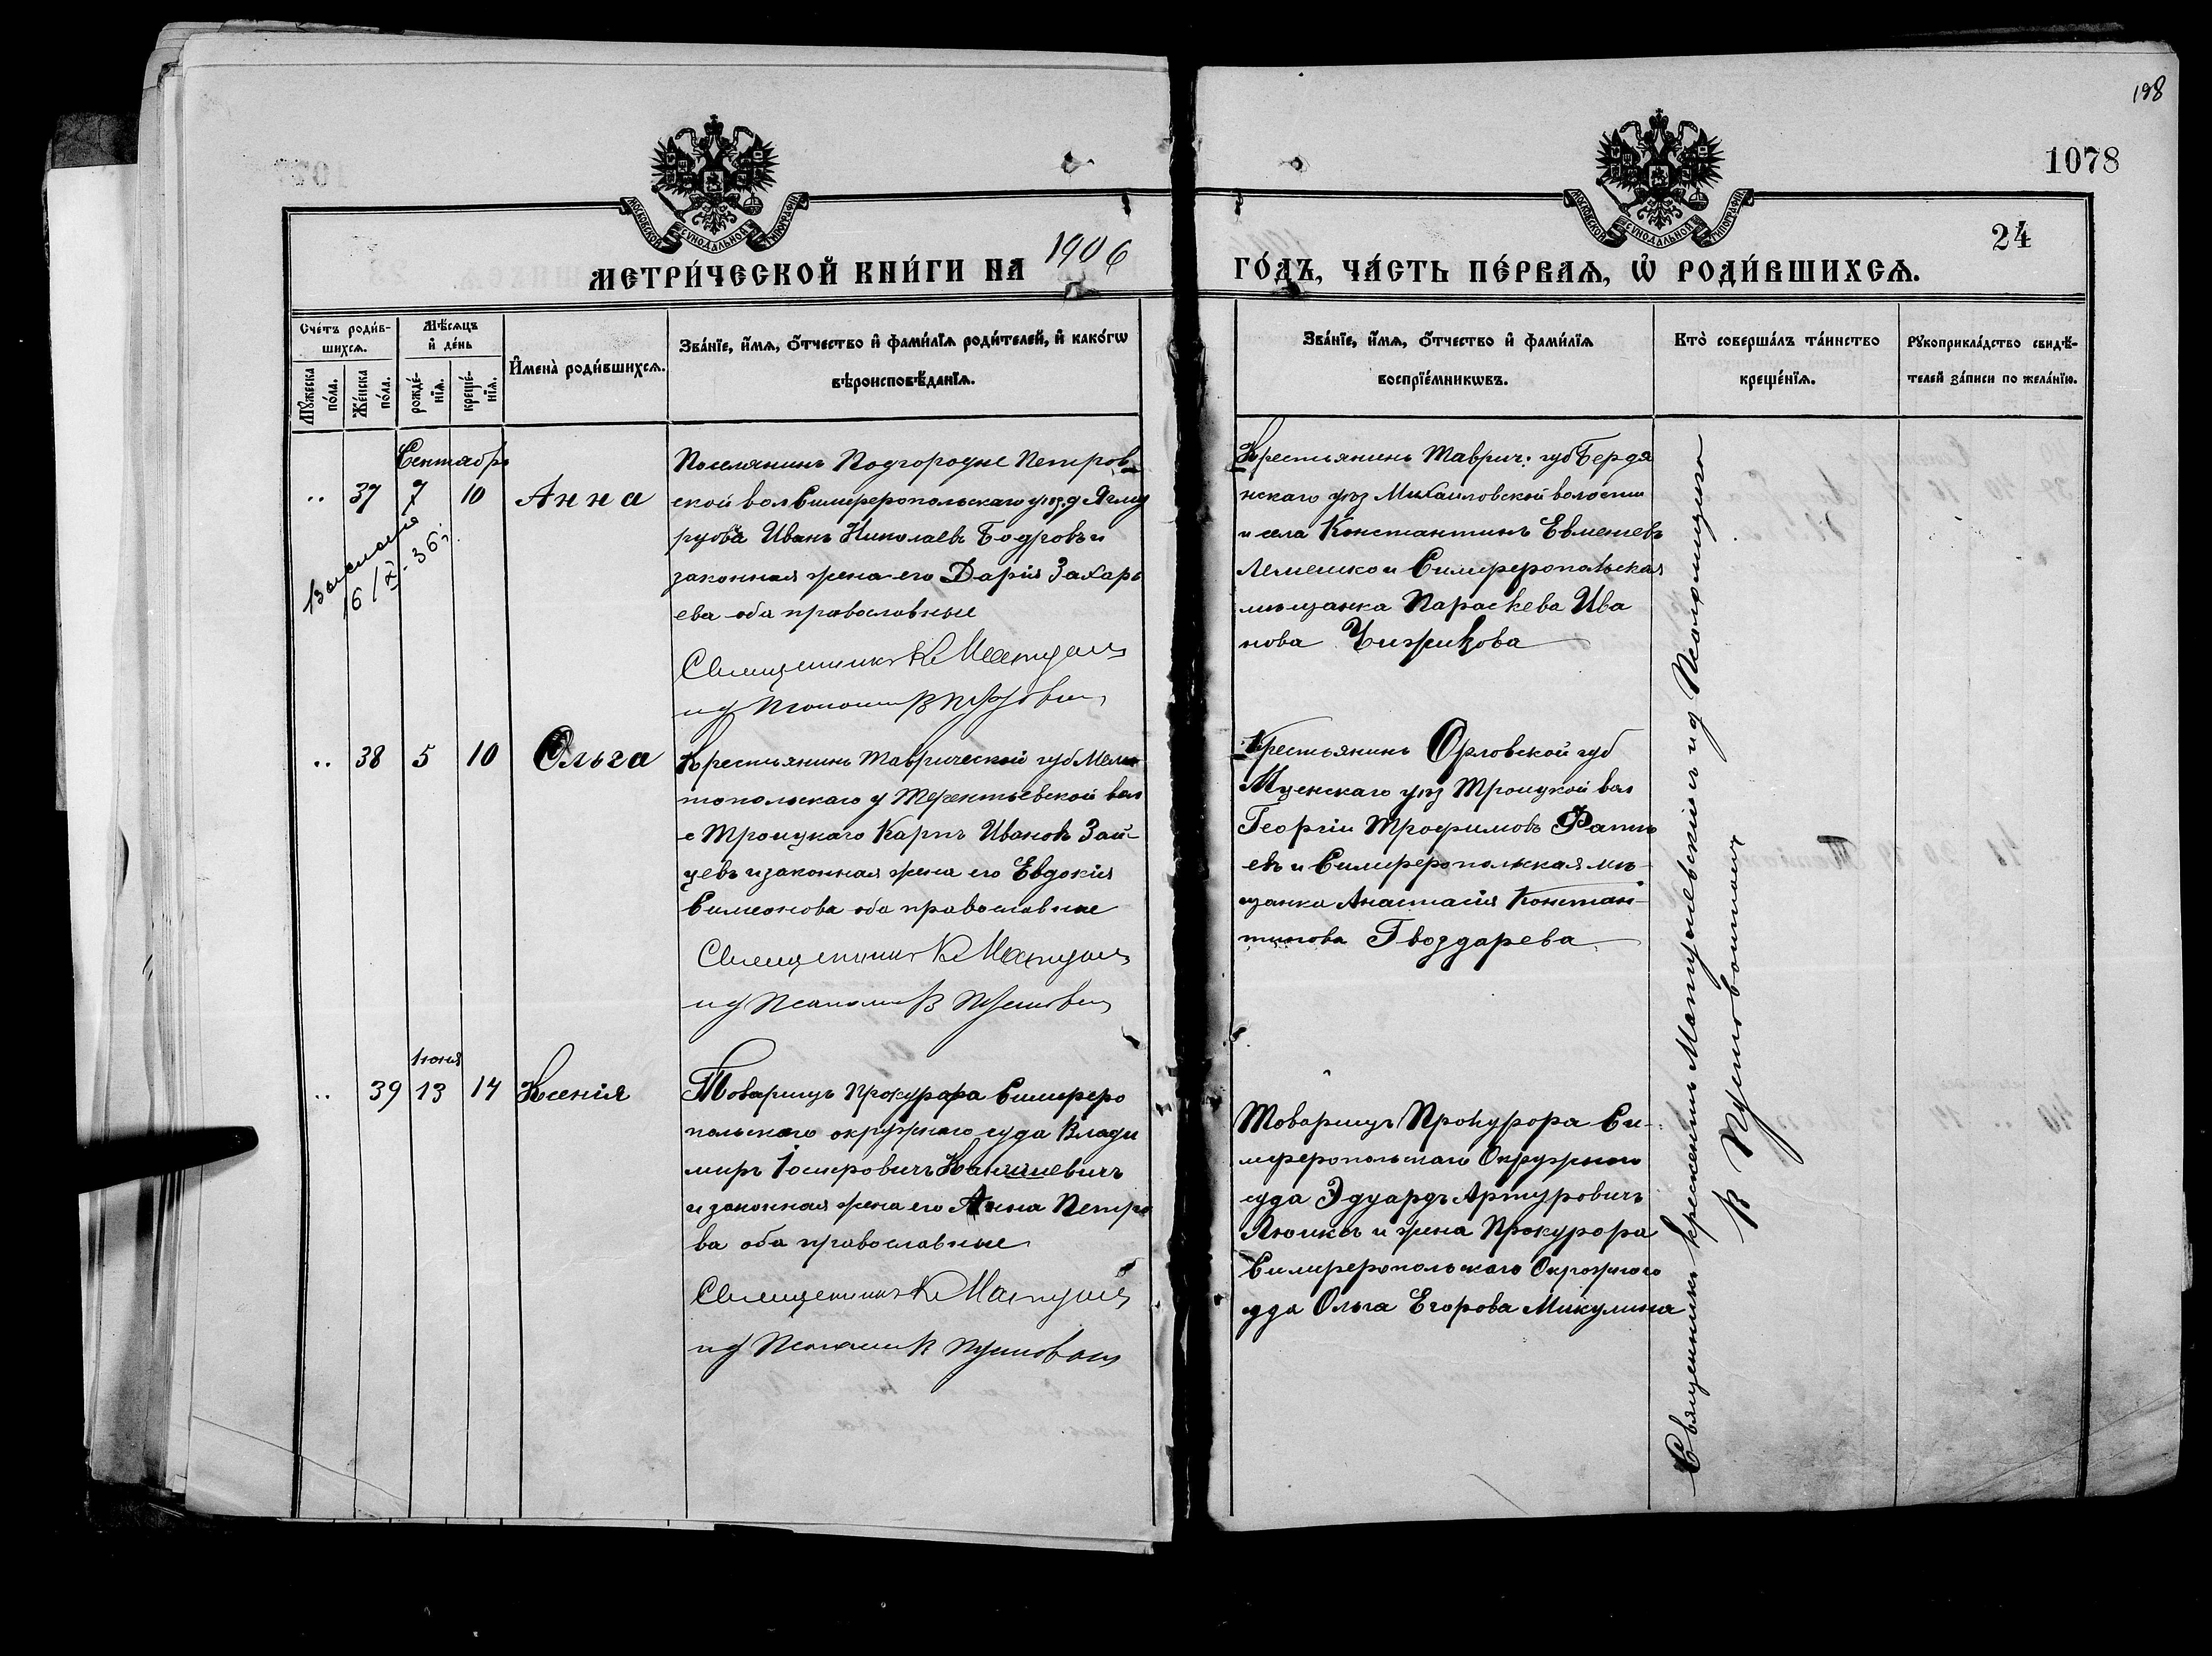 198
1078
24
МОСКОВСКОЙ СѴНОДАЛЬНОЙ ТИПОГРАФІИ
МЕТРИ́ЧЕСКОЙ КНИ́ГИ НА 1906
МОСКОВСКОЙ СѴНОДАЛЬНОЙ ТИПОГРАФІИ
ГО́ДЪ, ЧА́СТЬ ПЕ́РВАЯ, Ѡ РОДИ́ВШИХСЯ.
Сче́тъ роди́в-
шихся.
Мꙋ́жеска по́ла.
Же́нска по́ла.
Мѣ́сяцъ и де́нь
рожде́-
нїя.
креще́-
нїя.
Имена̀ роди́вшихся.
Зва́нїе, и́мя, о́тчество и фами́лїя роди́телей, и како́гѡ
вѣроисповѣ́данїя.
Зва́нїе, и́мя, о́тчество и фами́лїя
воспрїе́мникѡвъ.
Кто̀ соверша́лъ та́инство
креще́нїя.
Рꙋкоприкла́дство свидѣ́-
телей за́писи по жела́нїю.
Сентябрь
.. 37 7 10 Анна
16/X-36г.
Поселянинъ Подгородне Петров
ской вол Симферопольскаго уѣз. д
Иванъ Николаевъ Бодровъ и
законная жена его Дарія Захарь
ева оба православные
Священникъ К Мацуев
ид Псаломщ В
Крестьянинъ Таврич: губ Бердя
нскаго уѣз Михайловской волости
и села Константинъ Евменіевъ
Лемешко и Симферопольская
мѣщанка Параскева Ива
нова Чижикова
.. 38 5 10 Ольга
Крестьянинъ Таврической губ Мели
топольскаго у Терентьевской вол
с Троицкаго Карпъ Ивановъ Зай-
цевъ и законная жена его Евдокія
Симеонова оба православные
Священникъ К
ид Псаломщ В
Крестьянинъ Орловской губ
Мценскаго уѣз Троицкой вол
Георгій Трофимовъ
евъ и Симферопольская мѣ-
щанка Анастасія Констан-
тинова Гвоздарева
Іюня
.. 39 13 14 Ксенія
Товарищъ Прокурора Симферо
польскаго окружнаго суда Влади
миръ Іосифовичъ
и законная жена его Анна Петро
ва оба православные
Священникъ К
ид Псаломщ В
Товарищъ Прокурора Си-
мферопольскаго Окружнаго
суда Эдуардъ Артуровичъ
и жена Прокурора
Симферопольскаго Окружнаго
суда Ольга Егорова Микулина
Священникъ
ид Псаломщика
В